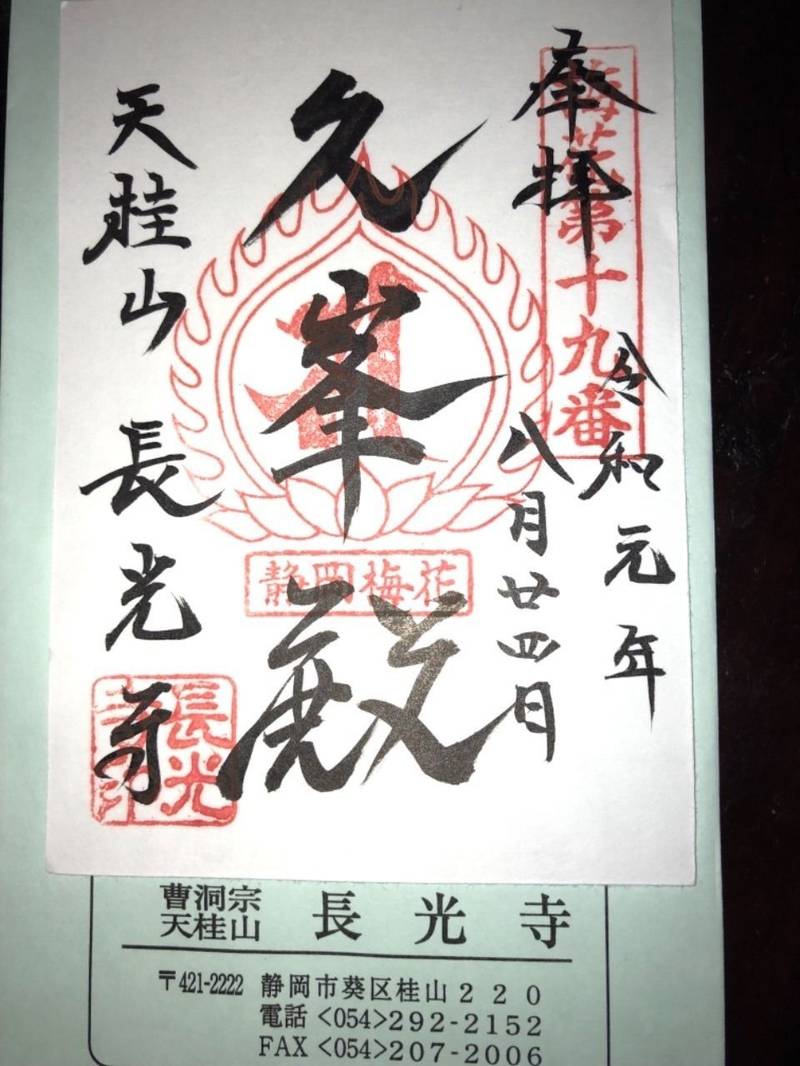 奉拝
梅花第十九番
令和元年
八月廿四日
久峯殿
静岡梅花
天桂山 長光寺
長光
曹洞宗
天桂山 長光寺
〒421-2222 静岡市葵区桂山220
電話<054>292-2152
FAX<054>207-2006